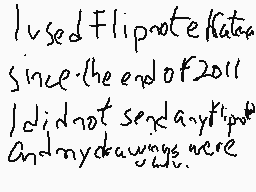 I used Flipnote Hatena
since the end of 2011
I did not send any flipnote
and my drawings were